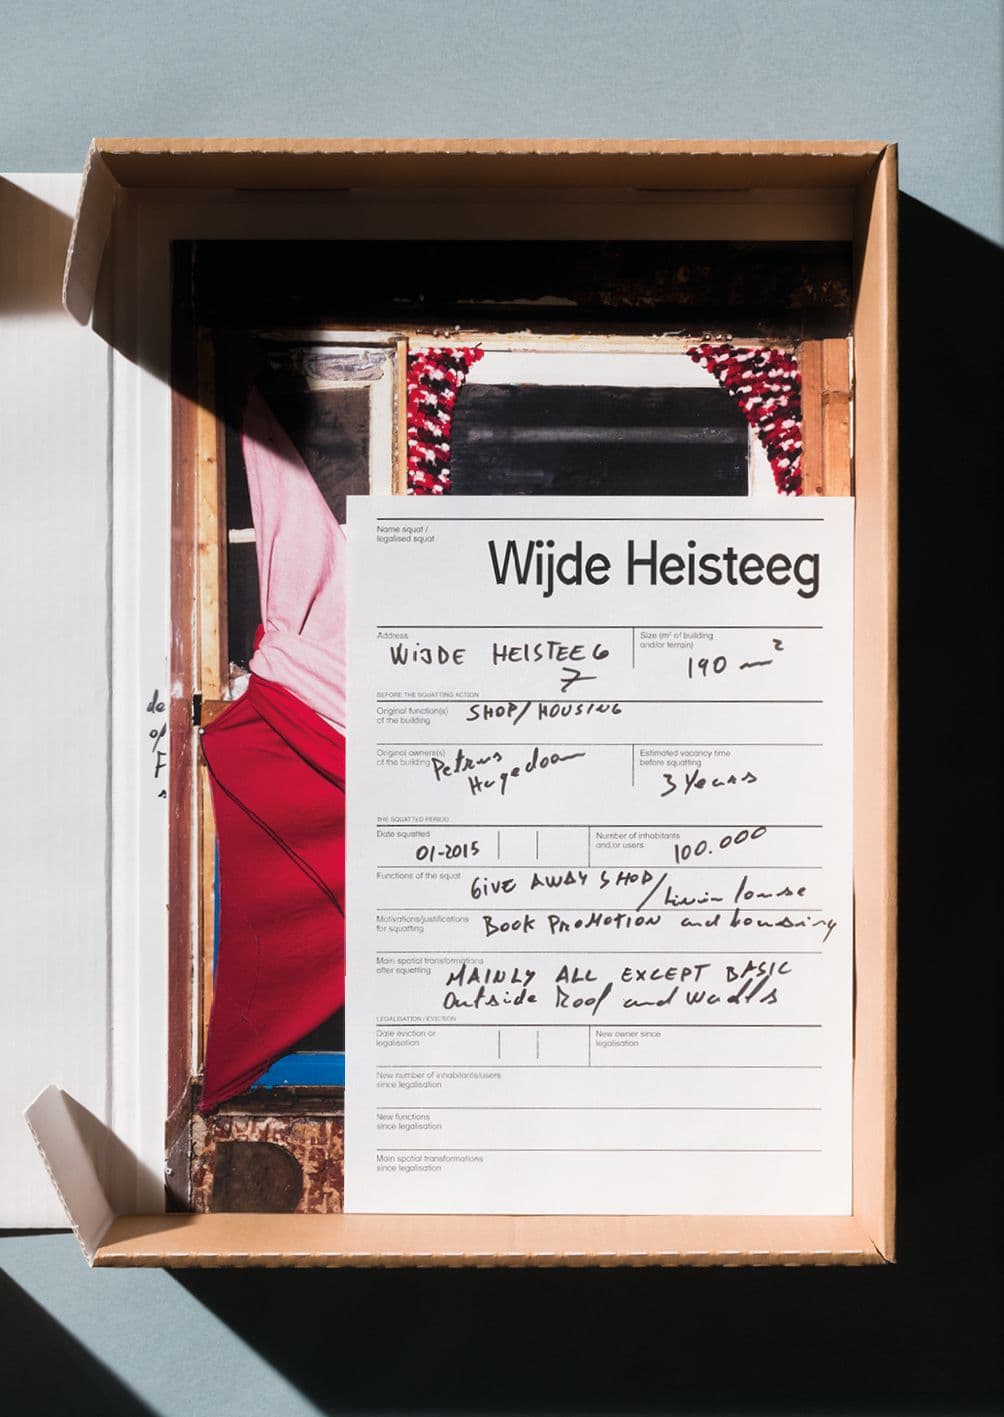 Name squat /
legalised squat
Wijde Heisteeg
Address
WIJDE HEISTEEG
7
Size (m² of building
and/or terrain)
190 m²
BEFORE THE SQUATTING ACTION
Original function(s)
of the building
SHOP/HOUSING
Original owners(s)
of the building
Petrus
Hugedoorn
Estimated vacancy time
before squatting
3 Years
THE SQUATTED PERIOD
Date squatted
01-2015
Number of inhabitants
and/or users
100.000
Functions of the squat
GIVE AWAY SHOP/
Motivations/justifications
for squatting
BOOK PROMOTION and housing
Main spatial transformations
after squatting
MAINLY ALL EXCEPT BASIC
Outside Roof and walls
LEGALISATION / EVICTION
Date eviction or
legalisation
New owner since
legalisation
New number of inhabitants/users
since legalisation
New functions
since legalisation
Main spatial transformations
since legalisation
de
op
F
s